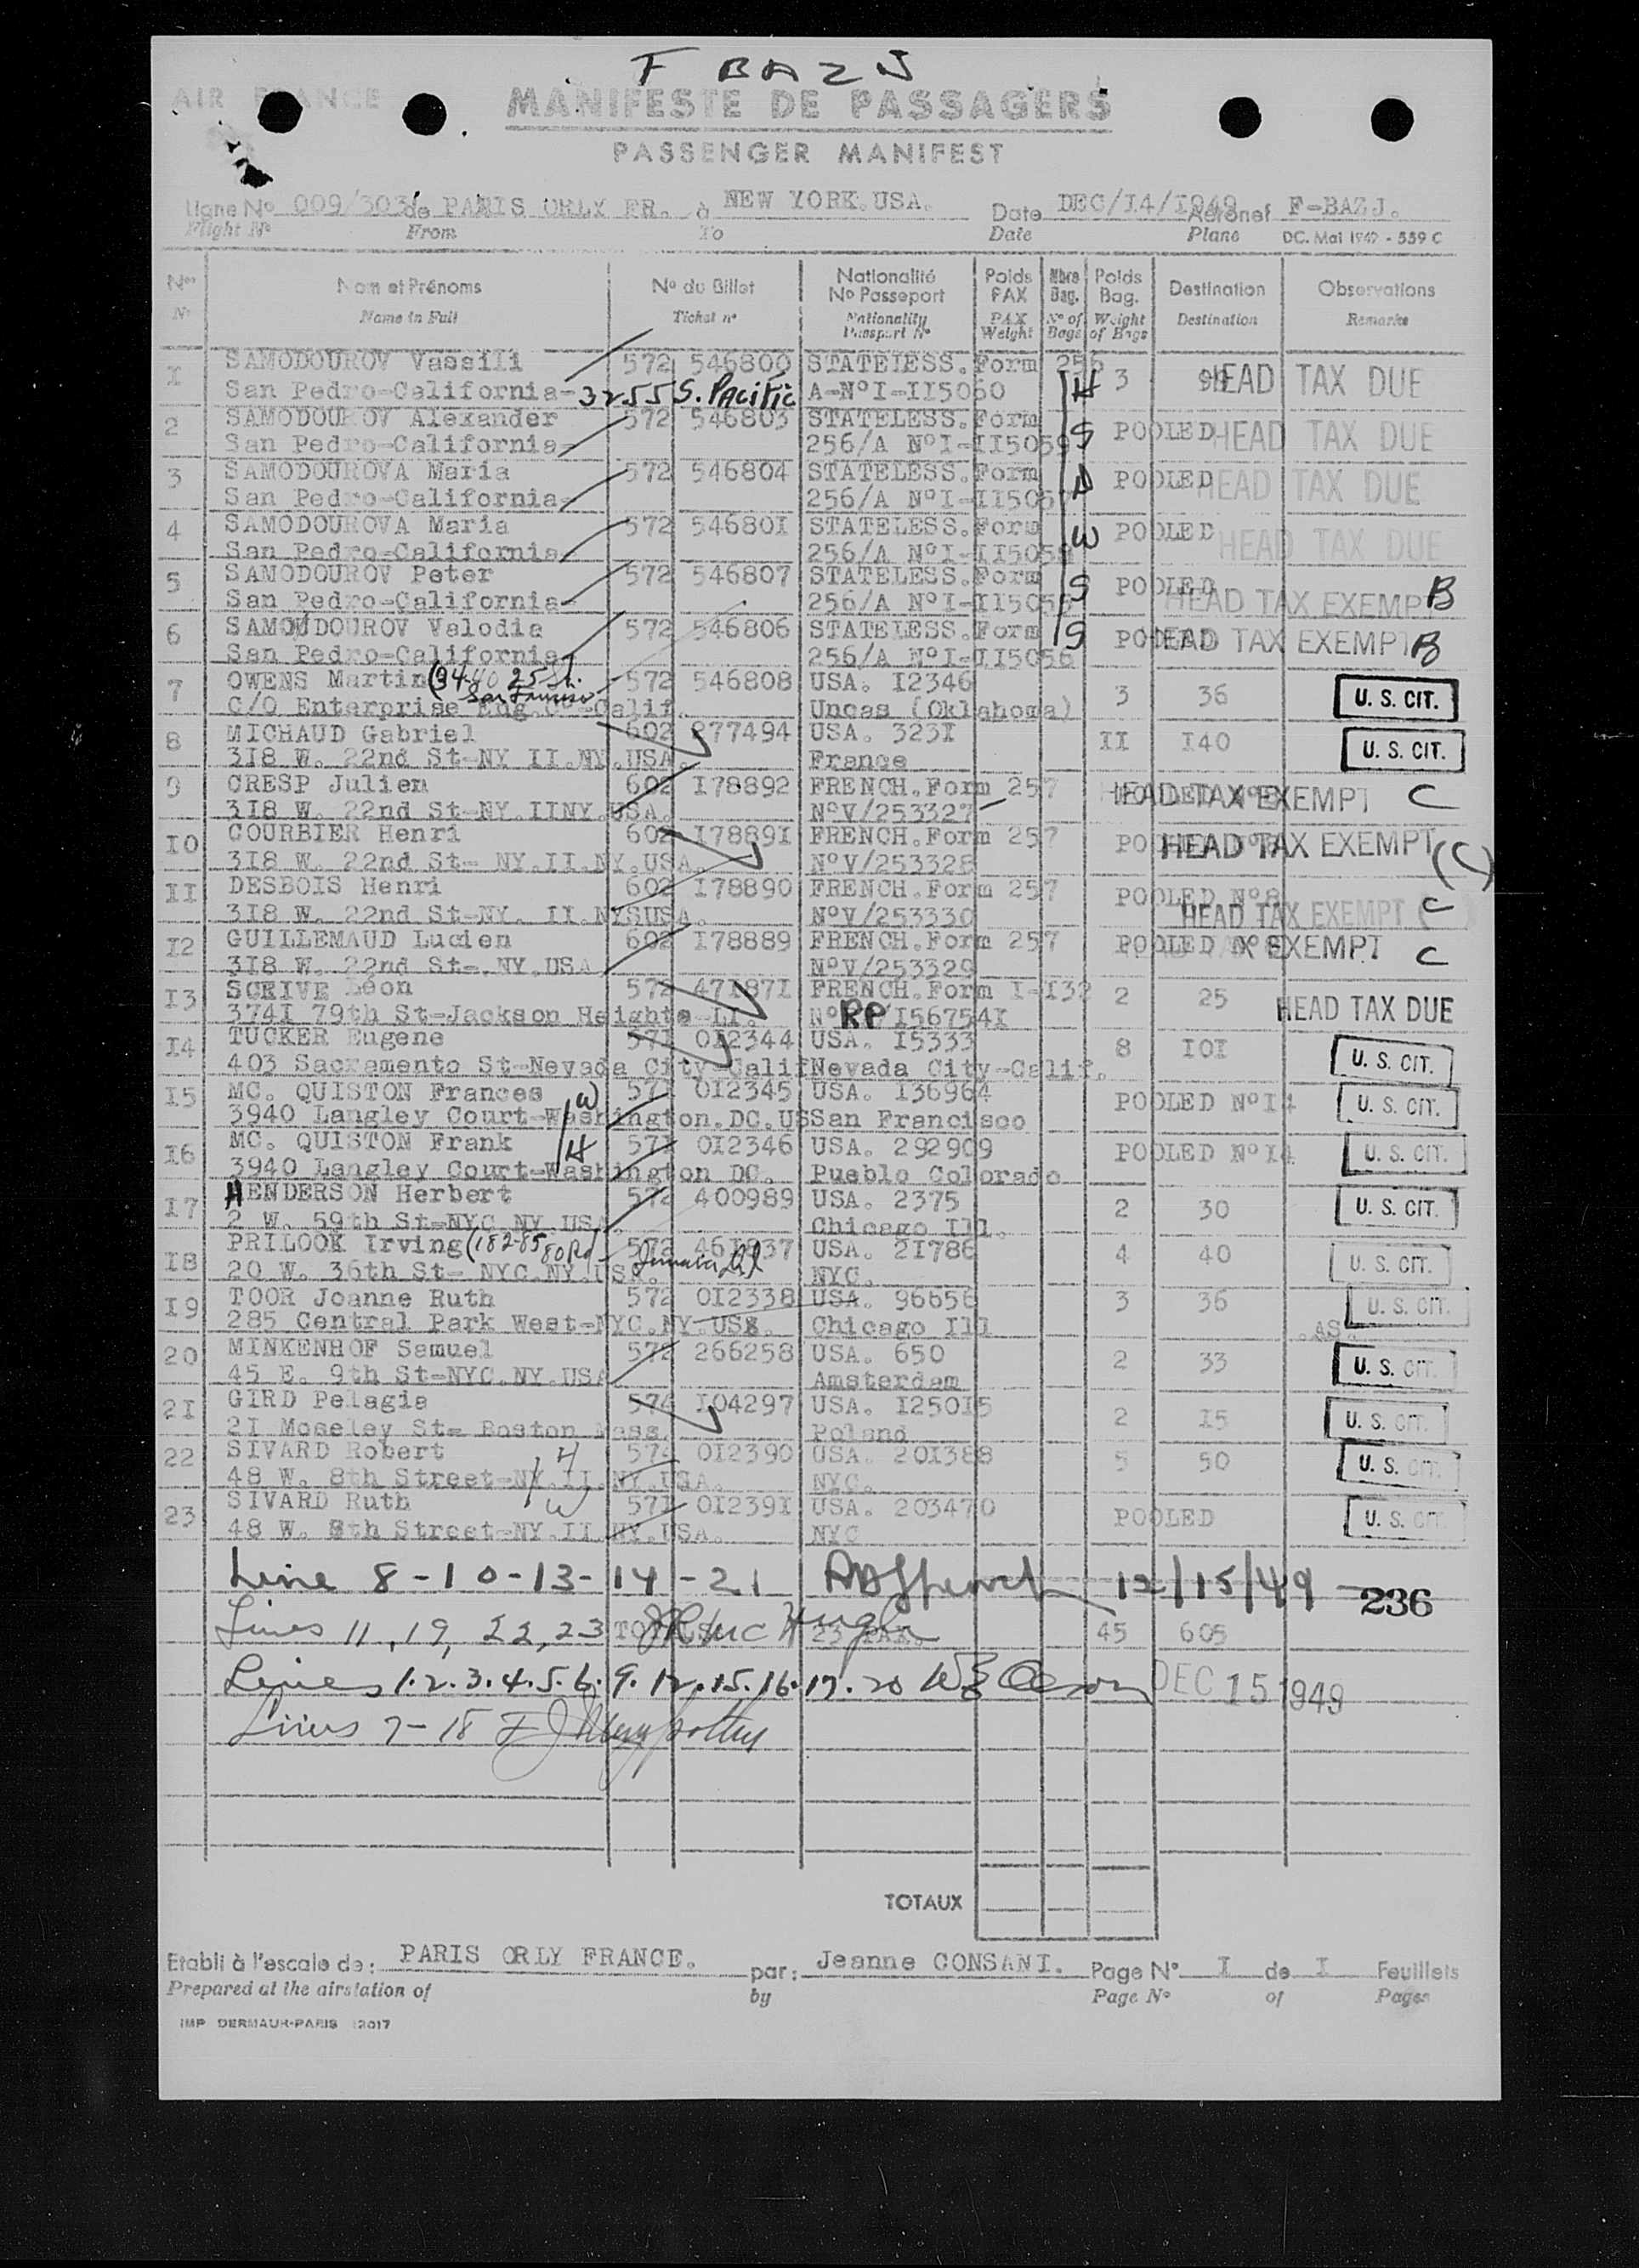 F BAZJ
AIR FRANCE
MANIFESTE DE PASSAGERS
PASSENGER MANIFEST
Ligne No 009/303 de PARIS ORLY FR. à NEW YORK.USA. Date DEC/I4/I949 Aéronef F-BAZJ.
Flight No From To Date Plane DC. Mai 1949 - 559 C
Nos Nom et Prénoms No du Billet Nationalité No Passeport Poids PAX Nbre Bag. Poids Bag. Destination Observations
No Name in Full Ticket no Nationality Passport No PAX Weight No of Bags Weight of Bags Destination Remarks
I SAMODOUROV Vassili 572 546800 STATELESS. Form 256
San Pedro-California- 3255 S. Pacific A-NoI-II5060 H 3 HEAD TAX DUE
2 SAMODOUROV Alexander 572 546803 STATELESS. Form
San Pedro-California- 256/A NoI-II5059 S POOLED HEAD TAX DUE
3 SAMODOUROVA Maria 572 546804 STATELESS. Form
San Pedro-California- 256/A NoI-II505 D POOLED HEAD TAX DUE
4 SAMODOUROVA Maria 572 54680I STATELESS. Form
San Pedro-California- 256/A NoI-II505 W POOLED HEAD TAX DUE
5 SAMODOUROV Peter 572 546807 STATELESS. Form
San Pedro-California- 256/A NoI-II505 S POOLED HEAD TAX EXEMPT B
6 SAMOUDOUROV Valodia 572 546806 STATELESS. Form
San Pedro-California- 256/A NoI-II5056 S POOLED HEAD TAX EXEMPT B
7 OWENS Martin (3440 25 St. San Francisco 572 546808 USA. I2346
C/O Enterprise Eng.C°-Calif. Uncas (Oklahoma) 3 36 U. S. CIT.
8 MICHAUD Gabriel 602 277494 USA. 323I
3I8 W. 22nd St-NY II.NY.USA. France II I40 U. S. CIT.
9 CRESP Julien 602 I78892 FRENCH. Form 257
3I8 W. 22nd St-NY.IINY.USA. NoV/253327 HEAD TAX EXEMPT C
IO COURBIER Henri 602 I7889I FRENCH. Form 257
3I8 W. 22nd St- NY.II.NY.USA. NoV/253328 HEAD TAX EXEMPT (C)
II DESBOIS Henri 602 I78890 FRENCH. Form 257
3I8 W. 22nd St-NY. II.NYSUSA. NoV/253330 POOLED No8 HEAD TAX EXEMPT C
I2 GUILLEMAUD Lucien 602 I78889 FRENCH. Form 257
3I8 W. 22nd St-.NY.USA NoV/253329 POOLED No8 EXEMPT C
I3 SCRIVE Léon 572 47I87I FRENCH. Form I-I32
374I 79th St-Jackson Heights-LI. No RP I56754I 2 25 HEAD TAX DUE
I4 TUCKER Eugene 57I 0I2344 USA. I5333
403 Sacramento St-Nevada City-Calif Nevada City-Calif. 8 IOI U. S. CIT.
I5 MC. QUISTON Frances W 57I 0I2345 USA. I36964
3940 Langley Court-Washington.DC.US San Francisco POOLED NoI4 U. S. CIT.
I6 MC. QUISTON Frank H 57I 0I2346 USA. 292909
3940 Langley Court-Washington DC. Pueblo Colorado POOLED NoI4 U. S. CIT.
I7 HENDERSON Herbert 572 400989 USA. 2375
2 W. 59th St-NYC.NY.USA. Chicago Ill. 2 30 U. S. CIT.
I8 PRILOOK Irving (182-85 80 Rd 572 461837 USA. 2I786
20 W. 36th St- NYC.NY.USA. Jamaica LI NYC. 4 40 U. S. CIT.
I9 TOOR Joanne Ruth 572 0I2338 USA. 96656
285 Central Park West-NYC.NY.USA. Chicago Ill 3 36 U. S. CIT.
.AS.
20 MINKENHOF Samuel 572 266258 USA. 650
45 E. 9th St=NYC.NY.USA Amsterdam 2 33 U. S. CIT.
2I GIRD Pelagia 574 I04297 USA. I250I5
2I Moseley St= Boston Mass. Poland 2 I5 U. S. CIT.
22 SIVARD Robert H 574 0I2390 USA. 20I388
48 W. 8th Street-NY.II.NY.USA. NYC. 5 50 U. S. CIT.
23 SIVARD Ruth W 57I 0I239I USA. 203470
48 W. 8th Street-NY.II.NY.USA. NYC POOLED U. S. CIT.
Line 8-10-13-14-21 12/15/49 236
Lines 11, 19, 22, 23 23 PAX. 45 605
Lines 1.2.3.4.5.6.9.12.15.16.17.20 DEC 15 1949
Lines 7-18
TOTAUX
Etabli à l'escale de: PARIS ORLY FRANCE. par: Jeanne CONSANI. Page No I de I Feuillets
Prepared at the airstation of by Page No of Pages
IMP DERMAUX-PARIS 12017